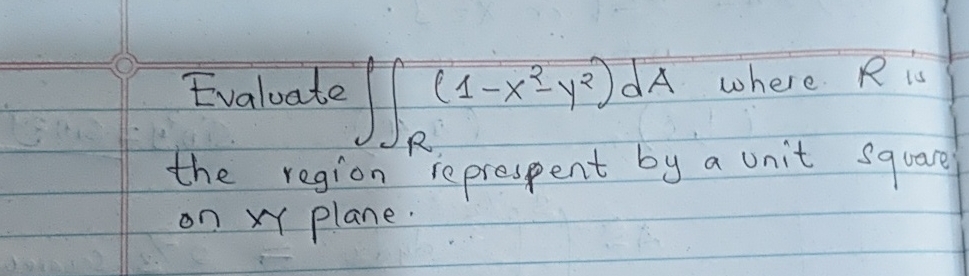 Evaluate ∬_R (1-x²-y²) dA where R is
the region represpent by a unit square
on XY plane.